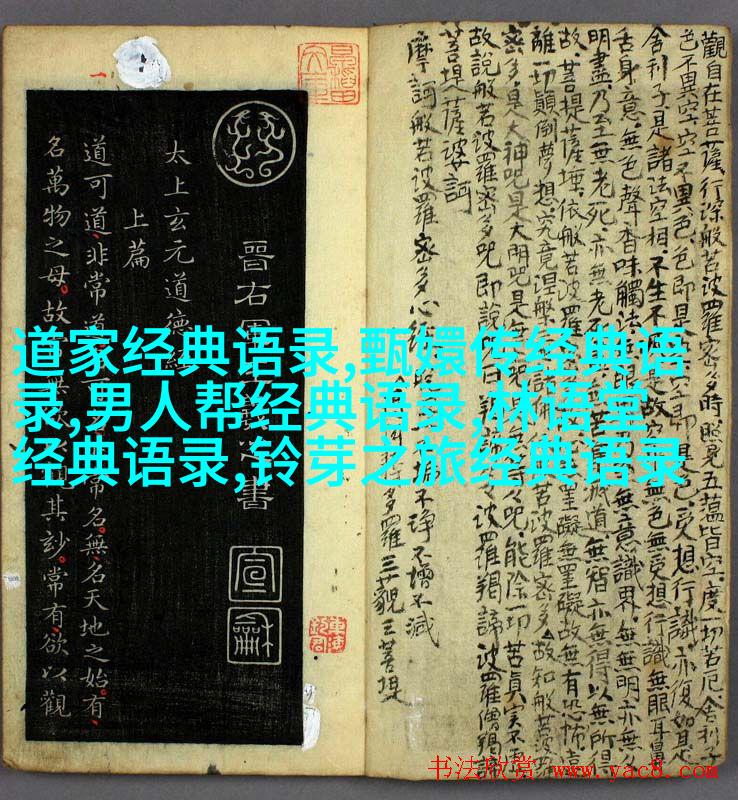 道家经典语录,甄嬛传经典语
录,男人帮经典语录,林语堂
经典语录,铃芽之旅经典语录
觀自在菩薩行深般若波羅蜜多時照見五蘊皆空度一切苦厄舍利子
色不異空空不異色色即是空即是色受想行識亦復如是
舍利子是諸法空相不生不是故空無色無受想行識無眼耳鼻
舌身意無色聲香味觸法無意識界無無明亦無
明盡乃至無老死亦無老苦滅道無智亦無得以無所得
故菩提薩埵依般若波羅罣礙無罣礙故無有恐怖遠
離一切顛倒夢想究竟涅般若波羅密多故知般若波
密多是大神咒是大明咒是無咒能除一切苦真實不
故說般若波羅密多咒即說曰羯諦波羅羯諦波羅僧羯諦
菩提薩婆訶
摩訶般若波羅密多心經
不淨不增不減
多羅三藐三菩提
晉右軍書
太上玄元道德經
上篇
道可道非常道可常名無名天地之始有
名萬物之母故無欲以觀其玅常有欲以觀
书法欣赏 www.yac8.com